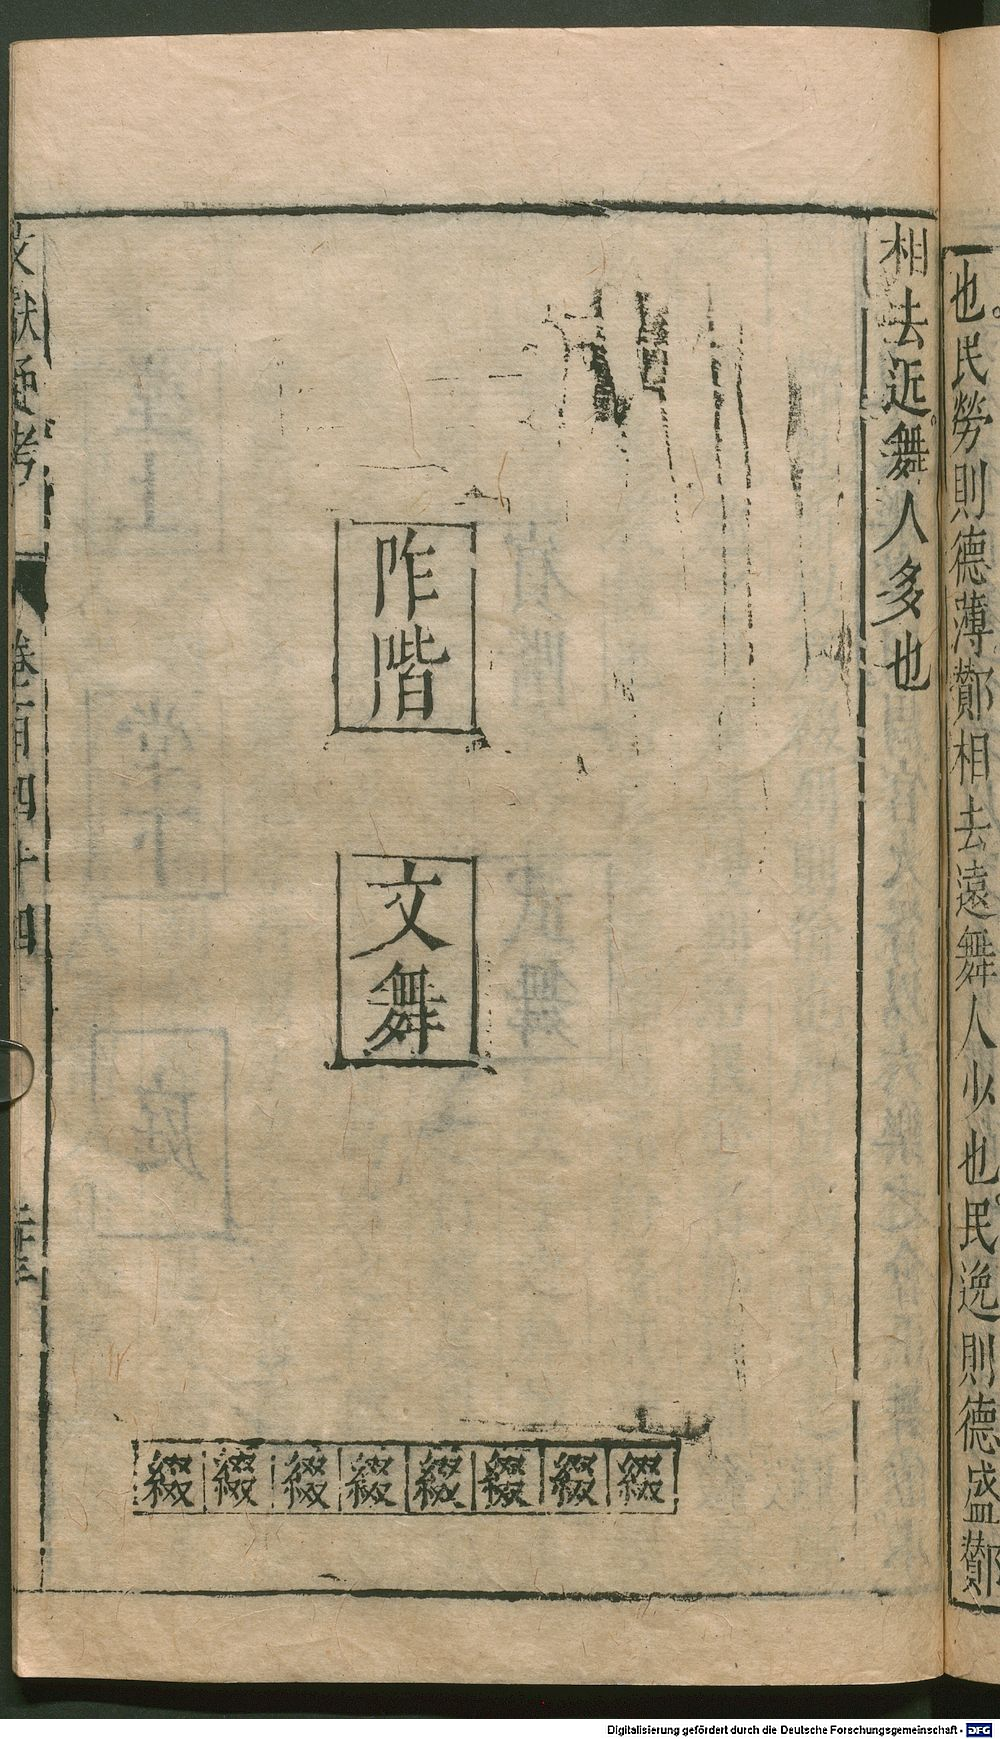 也民勞則德薄酇相去遠舞人少也民逸則德盛酇
相去近舞人多也
阼階
文舞
綴綴綴綴綴綴綴綴
文獻通考
卷一百四十四
Digitalisierung gefördert durch die Deutsche Forschungsgemeinschaft - DFG